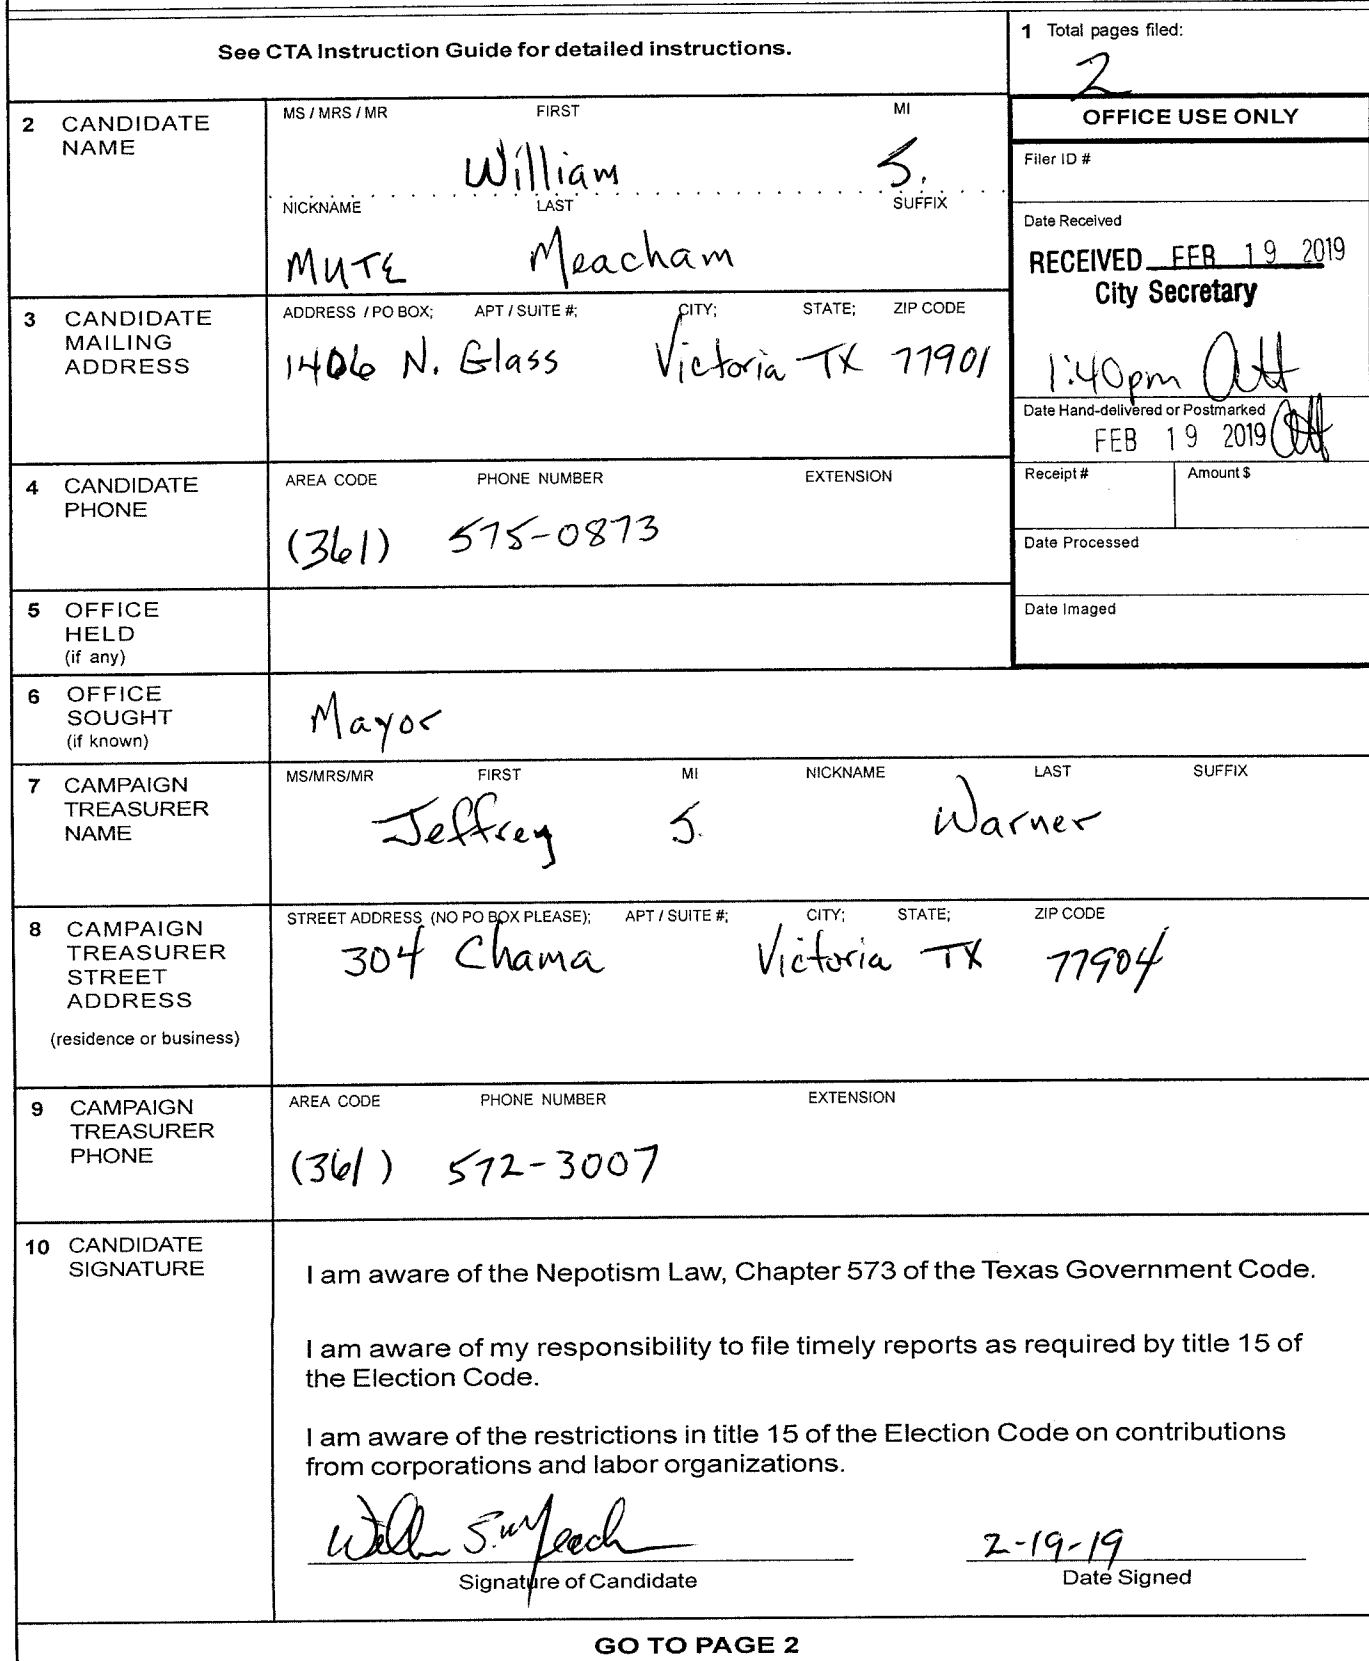 See CTA Instruction Guide for detailed instructions.
1 Total pages filed:
2
2 CANDIDATE NAME
MS / MRS / MR FIRST MI
William S.
NICKNAME LAST SUFFIX
MUTE Meacham
OFFICE USE ONLY
Filer ID #
Date Received
RECEIVED FEB 19 2019
City Secretary
1:40pm
Date Hand-delivered or Postmarked
FEB 19 2019
Receipt # Amount $
Date Processed
Date Imaged
3 CANDIDATE MAILING ADDRESS
ADDRESS / PO BOX; APT / SUITE #; CITY; STATE; ZIP CODE
1406 N. Glass Victoria TX 77901
4 CANDIDATE PHONE
AREA CODE PHONE NUMBER EXTENSION
(361) 575-0873
5 OFFICE HELD (if any)
6 OFFICE SOUGHT (if known)
Mayor
7 CAMPAIGN TREASURER NAME
MS/MRS/MR FIRST MI NICKNAME LAST SUFFIX
Jeffrey J. Warner
8 CAMPAIGN TREASURER STREET ADDRESS
(residence or business)
STREET ADDRESS (NO PO BOX PLEASE); APT / SUITE #; CITY; STATE; ZIP CODE
304 Chama Victoria TX 77904
9 CAMPAIGN TREASURER PHONE
AREA CODE PHONE NUMBER EXTENSION
(361) 572-3007
10 CANDIDATE SIGNATURE
I am aware of the Nepotism Law, Chapter 573 of the Texas Government Code.
I am aware of my responsibility to file timely reports as required by title 15 of
the Election Code.
I am aware of the restrictions in title 15 of the Election Code on contributions
from corporations and labor organizations.
2-19-19
Signature of Candidate Date Signed
GO TO PAGE 2